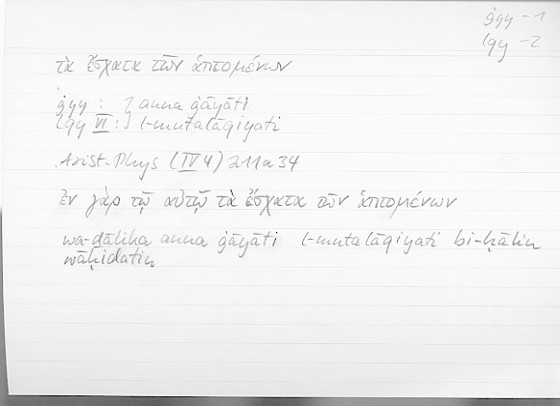 ġyy -1
lqy -2
τὰ ἔσχατα τῶν ἁπτομένων
ġyy : ] anna ġāyāti
lqy VI : ] l-mutalāqiyati
Arist. Phys (IV 4) 211a34
ἐν γὰρ τῷ αὐτῷ τὰ ἔσχατα τῶν ἁπτομένων
wa-ḏālika anna ġāyāti l-mutalāqiyati bi-ḥālin
wāḥidatin